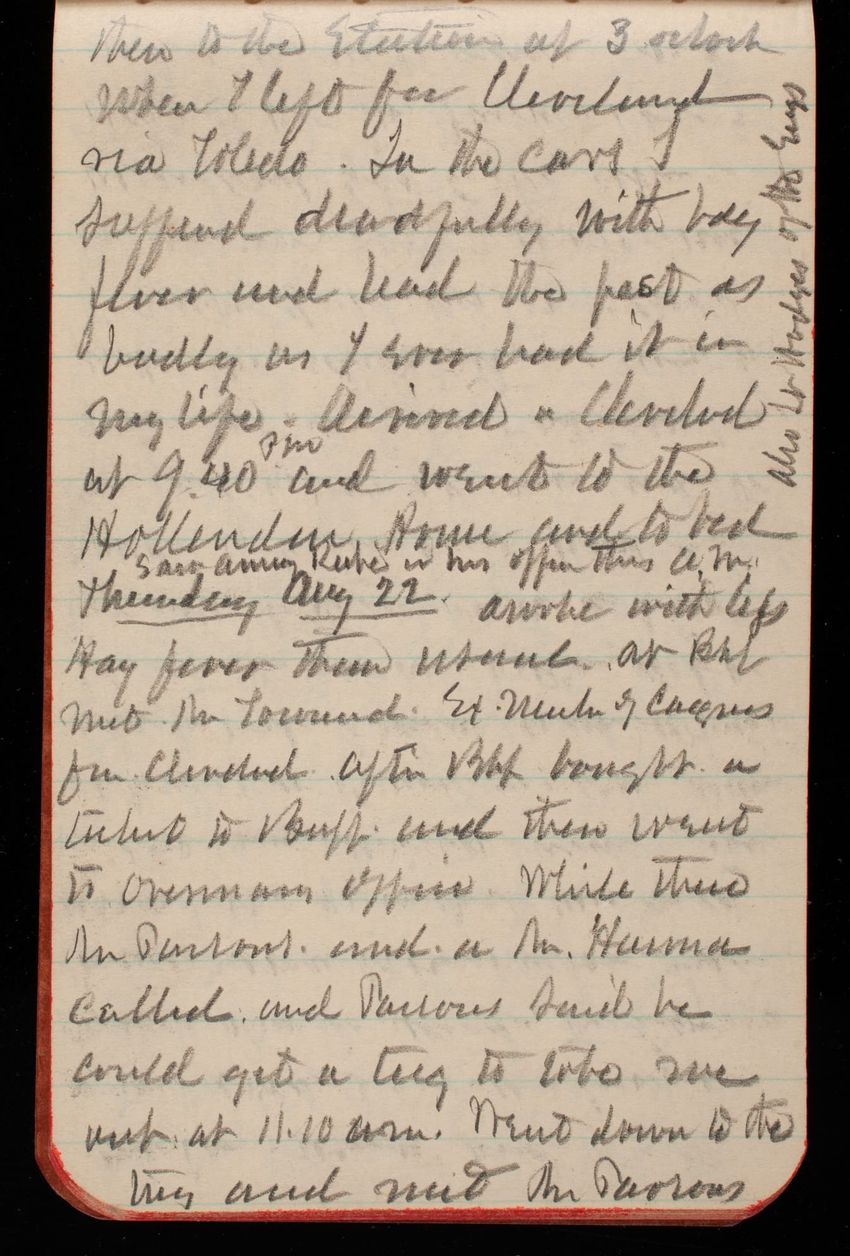 then to the Station at 3 oclock
when I left for Cleveland
via Toledo. In the cars I
suffered dreadfully with hay
fever and had the pest as
badly as I ever had it in
my life. Arrived a Cleveland
at 9.40 pm and went to the
Hollenden House and to bed
Saw in his office this a.m.
Thursday Aug 22. awoke with less
Hay fever than usual. at Bkf
met Mr Townsend. Ex. Memb of Congress
for Cleveland. After Bkf bought a
ticket to Buff. and then went
to Overmans office. While there
Mr Parsons. and. a Mr. Hanna
called. and Parsons said he
could get a tug to take me
out at 11.10 am. Went down to the
tug and met Mr Parsons
also Lt Hodges of the Engs